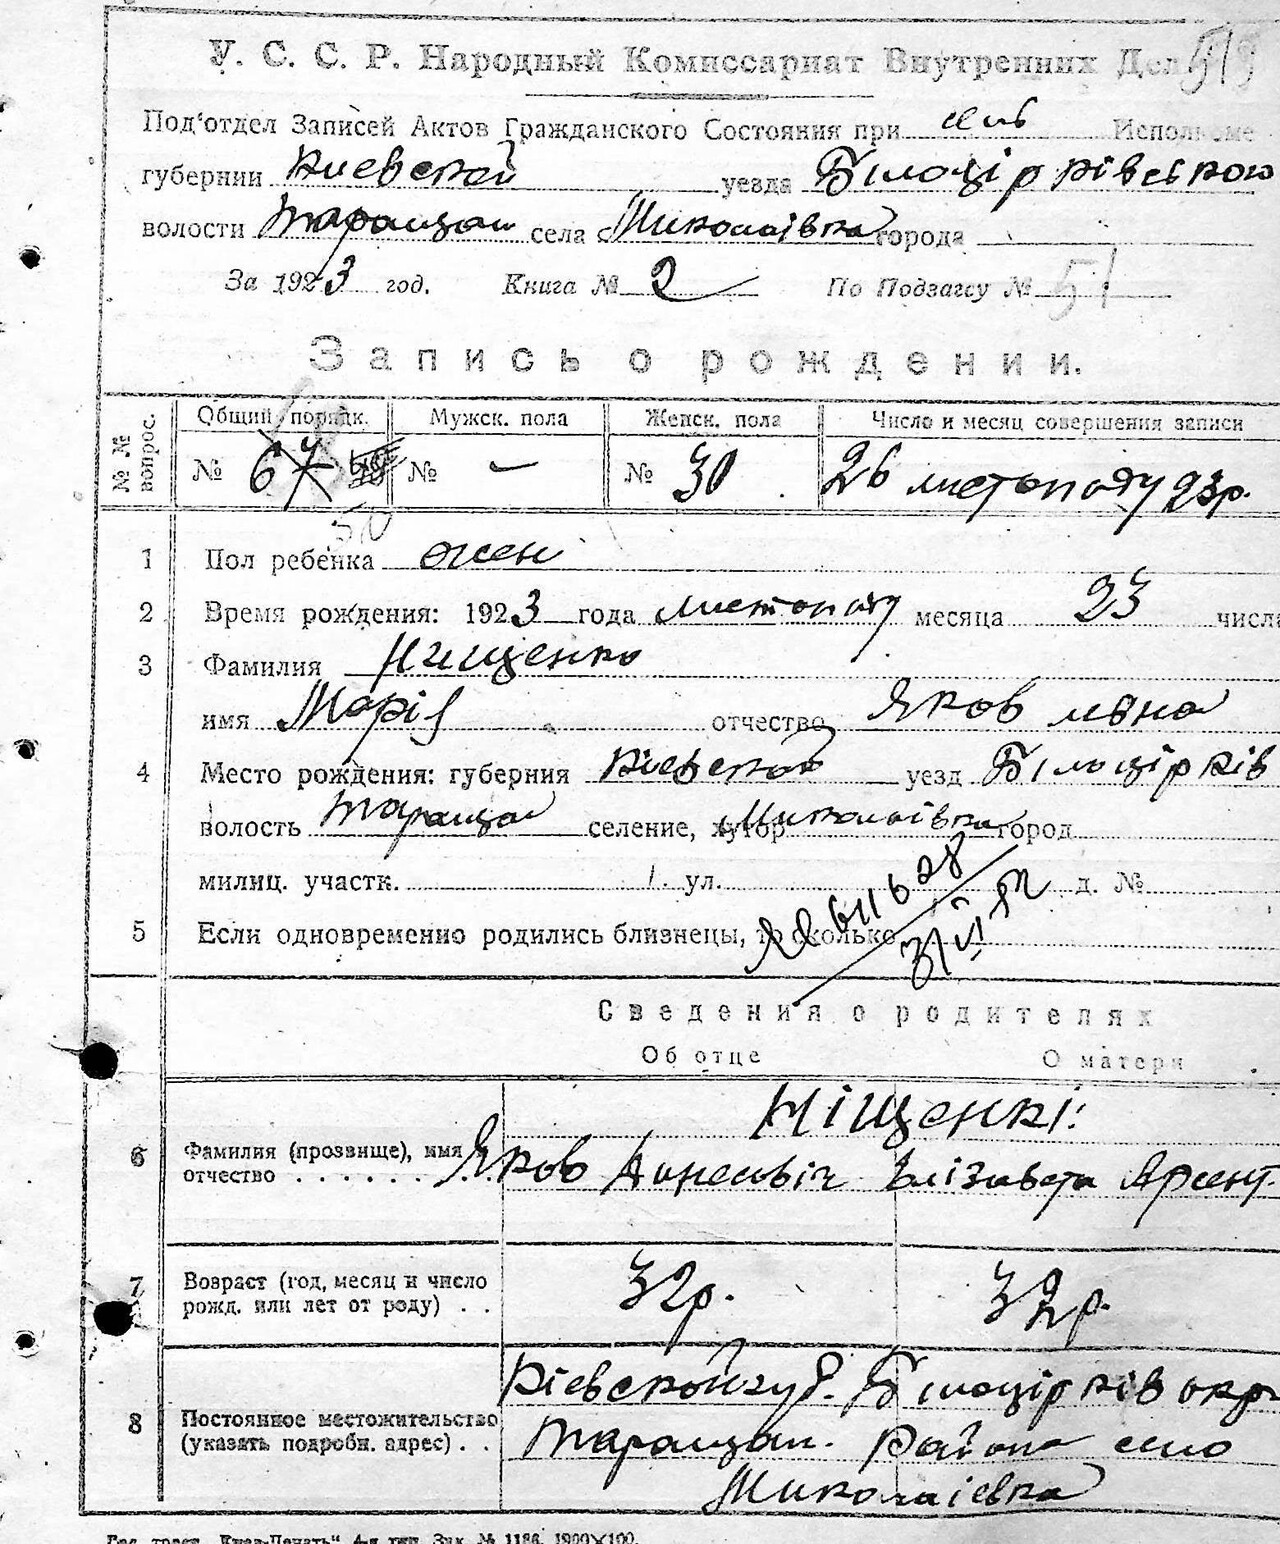 У. С. С. Р. Народный Комиссариат Внутренних Дел
Под'отдел Записей Актов Гражданского Состояния при сель Исполкоме
губернии Киевской уезда Білоцірківською
волости Таращан села с Миколаївка города
За 1923 год. Книга № 2 По Подзагсу № 51
Запись о рождении.
№ № вопрос. Общий порядк. Мужск. пола Женск. пола Число и месяц совершения записи
№ 67 № — № 30 26 листопаду 23р.
50
1 Пол ребенка жен
2 Время рождения: 1923 года листопаду месяца 23 числа
3 Фамилия Нищенко
имя Марія отчество Яковлевна
4 Место рождения: губерния Киевской уезд Білоцірків
волость Таращан селение, хутор Миколаївка город
милиц. участк. ул. д. №
5 Если одновременно родились близнецы, то сколько
Сведения о родителях
Об отце О матери
Ніщенкі:
6 Фамилия (прозвище), имя и Яков Елізавета Арсент.
отчество
7 Возраст (год, месяц и число 32р. 32р.
рожд. или лет от роду)
Кіевской губ. Білоцірків окр
8 Постоянное местожительство Таращан. Района село
(указать подробн. адрес)
Миколаієвка
Зак. № 1186. 1900×100.